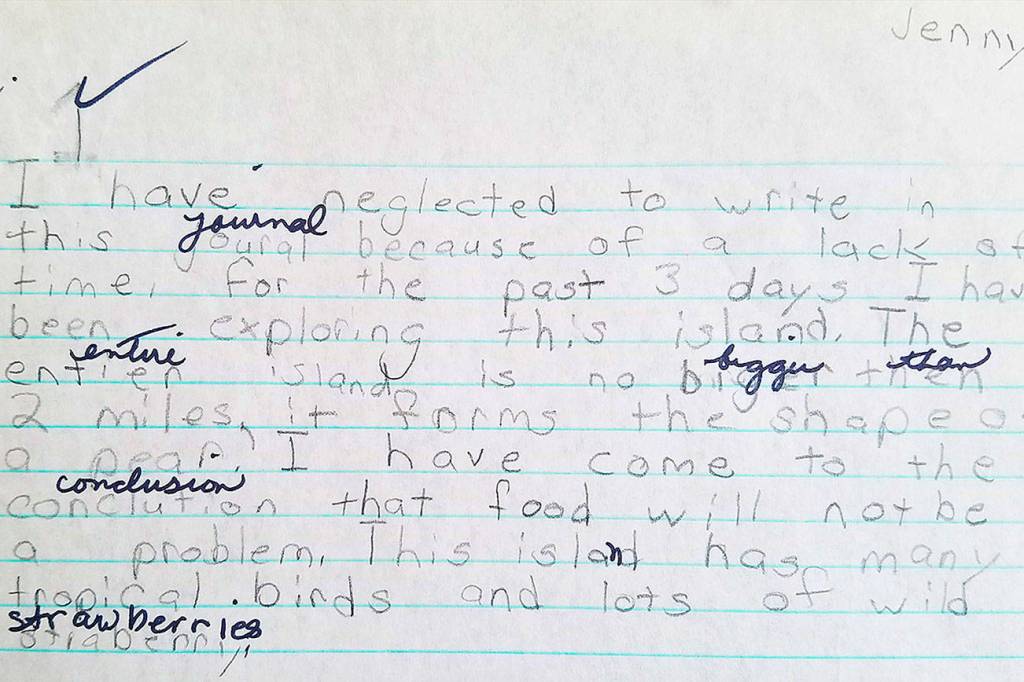 Jenny
I have neglected to write in
journal
this joural because of a lack of
time. For the past 3 days I hav
been exploring this island. The
entire bigger than
entien island is no biger then
2 miles, it forms the shape o
a pear. I have come to the
conclusion
conclution that food will not be
a problem. This island has many
tropical birds and lots of wild
strawberries